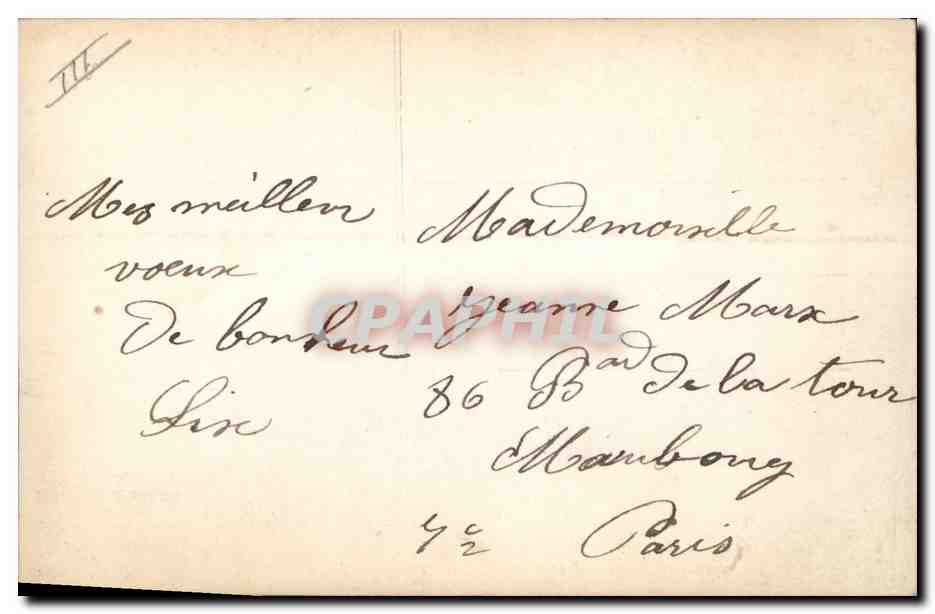 III
Mes meilleur
voeux
de bonheur
Mademoiselle
Jeanne Marx
86 Bard de la tour
Maubourg
7e Paris
CPAPHIL